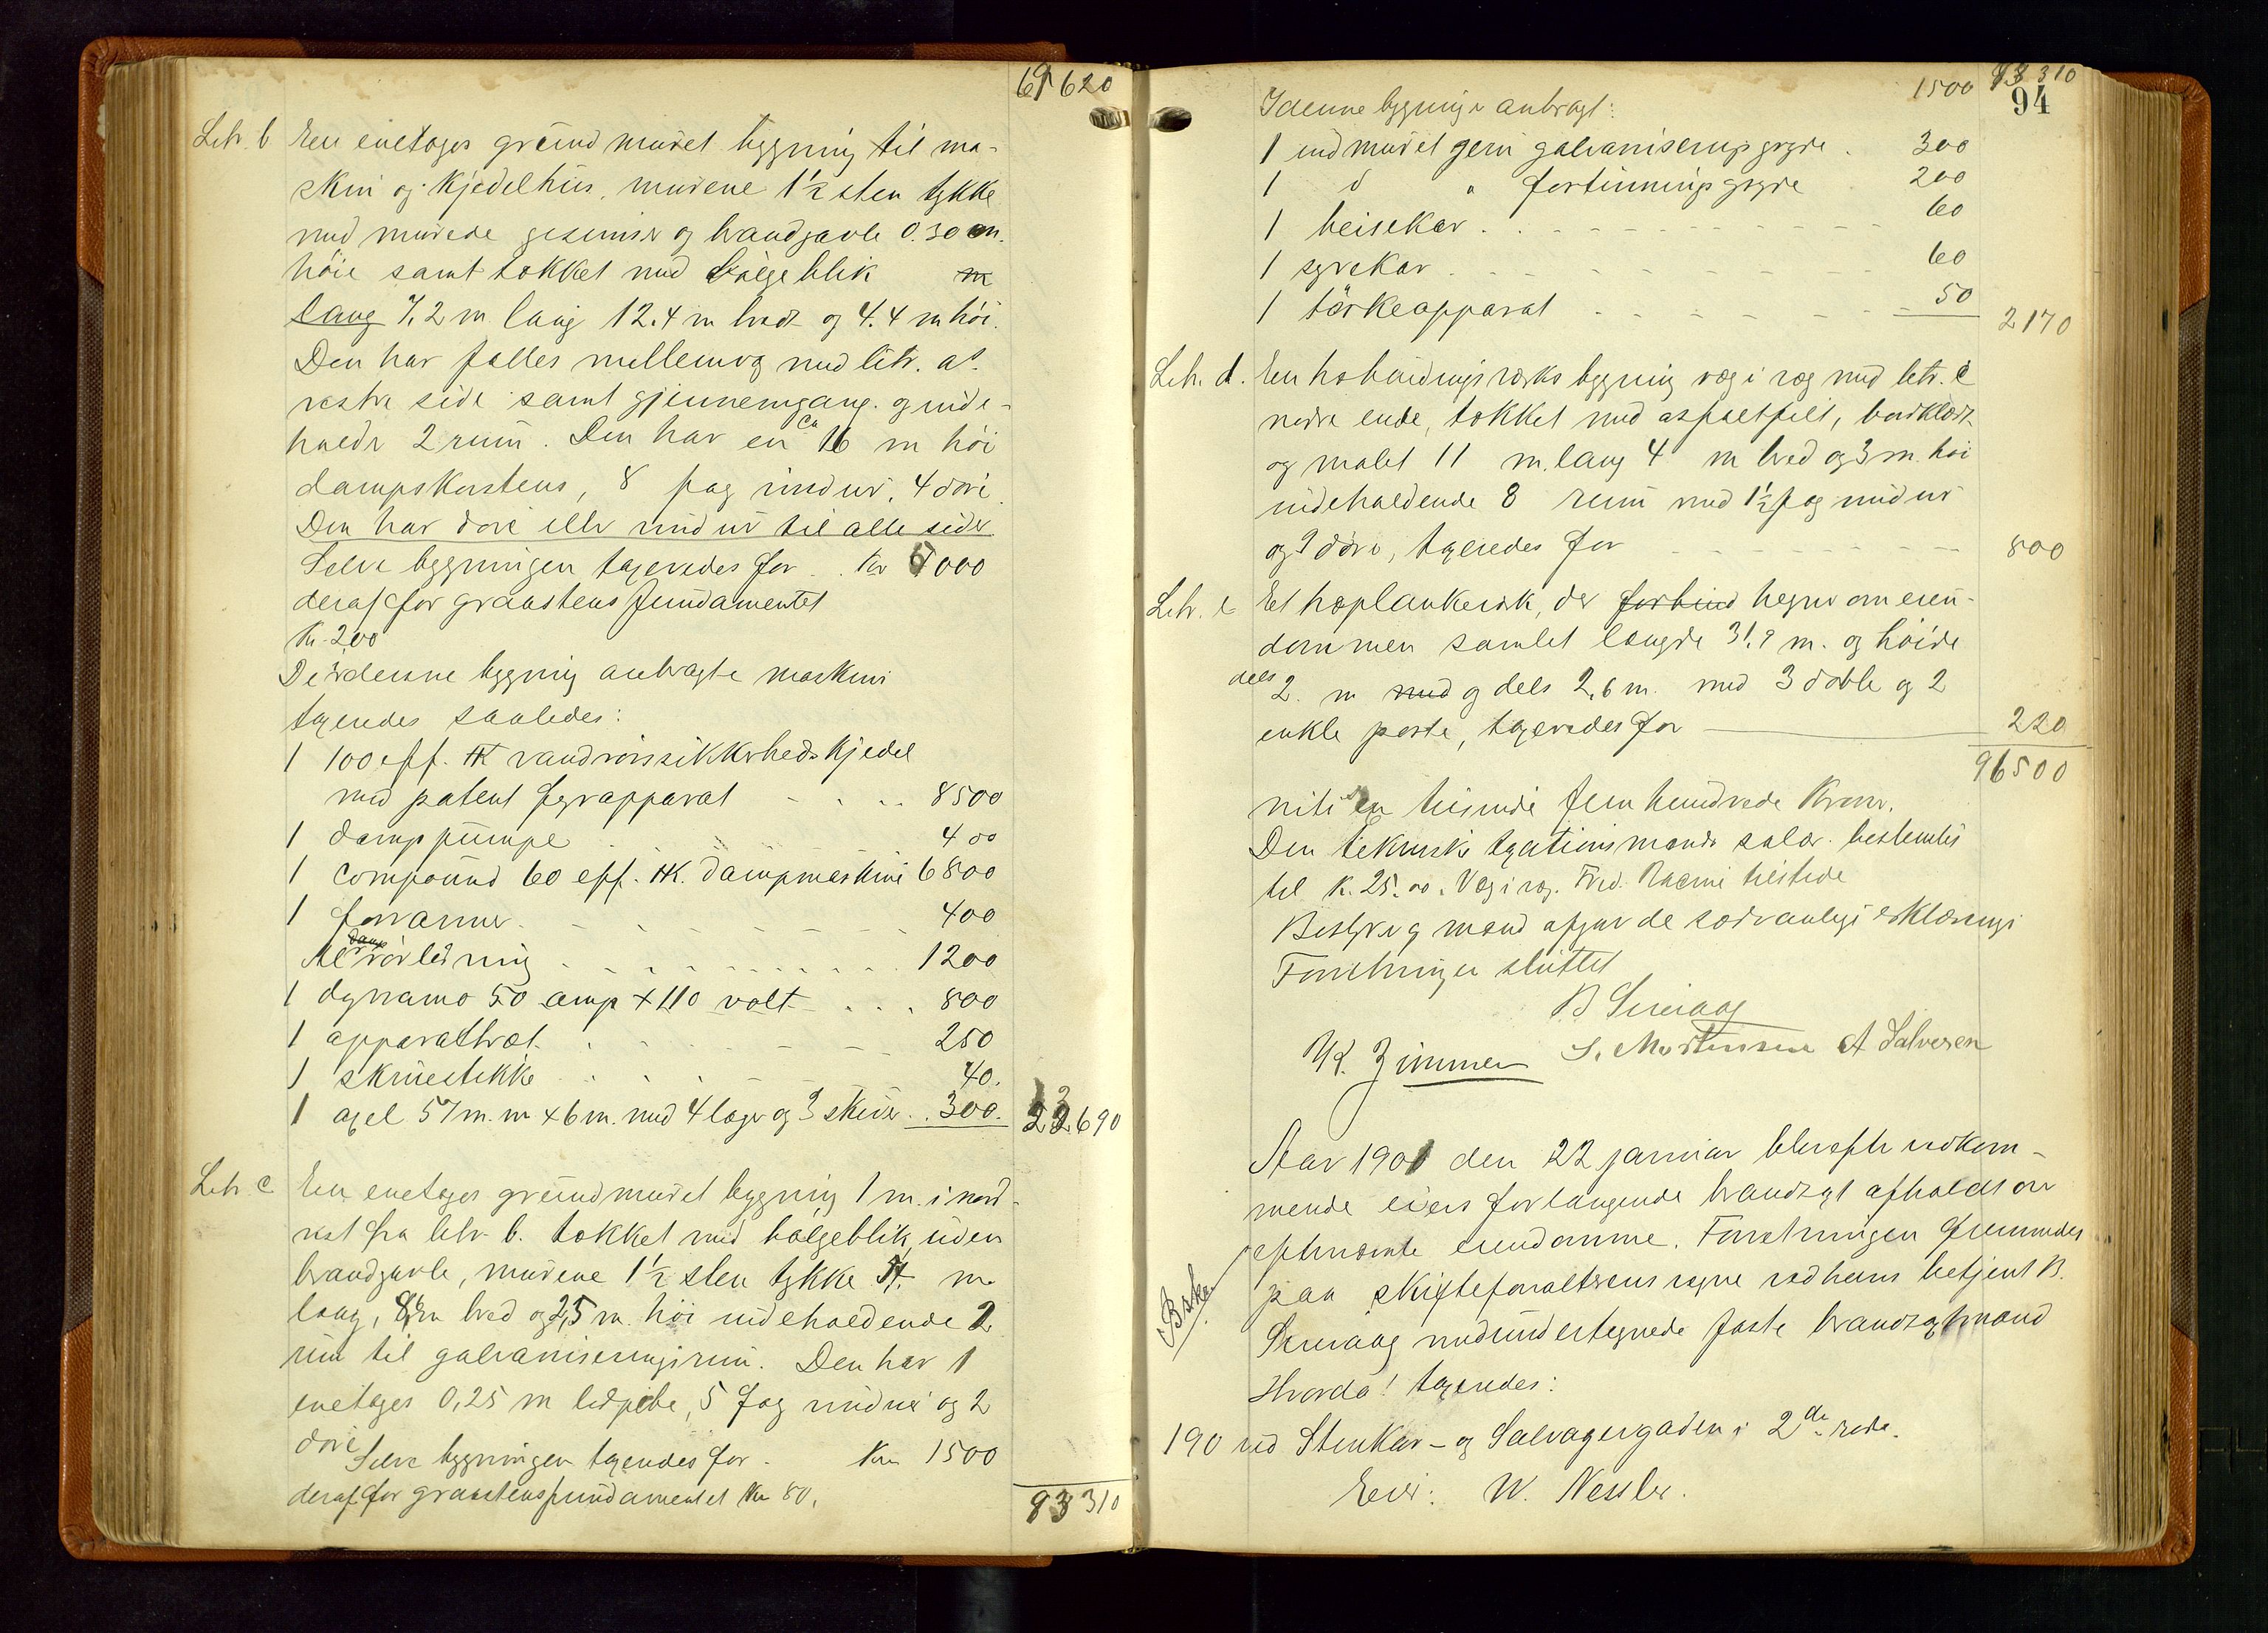 69 620
Letr. b En enetages grundmuret bygning til ma-
skin og kjedelhus, murene 1½ sten tykke
med murede gesimser og brandgavle 0.30 m.
höie samt tækket med bølgeblik m
lang 7,2 m lang 12.4 m bred og 4.4 m höi.
Den har fælles mellemvæg med litr. a's
vestre side samt gjennemgang og inde-
holder 2 rum. Den har en ca 16 m höi
dampskorstens, 8 fag vinduer, 4 döre.
Den har döre eller vinduer til alle sider.
Selve bygningen taxeredes for .. Kr 5000
deraf for graastens fundamentet
Kr. 200
De i denne bygning anbragte maskiner
taxeredes saaledes:
1 100 eff. HK vandrörssikkerhedskjedel
med patent fyrapparat - - - 8500
1 damppumpe 400
1 compound 60 eff. HK. dampmaskine 6800
1 forvarmer 400
Al damp rörledning 1200
1 dynamo 50 amp + 110 volt 800
1 apparatbræt 250
1 skruestikke 40.
1 axel 57 m.m + 6 m. med 4 lager og 3 skiver .. 300. 23690
Letr. c En enetages grundmuret bygning 1 m. i nord-
vest fra letr. b. tækket med bølgeblik, uden
brandgavle, murene 1½ sten tykke m
lang, m bred og 2,5 m. höi indeholdende 2
rum til galvaniseringsrum. Den har 1
enetages 0,25 m ledpibe, 5 fag vinduer og 2
döre
Selve bygningen taxeredes for - Kr 1500
deraf for graastensfundamentet Kr 80.
93 310
93 310
94
I denne bygning er anbragt: 1500
1 indmuret jern galvaniserings gryde . 300
1 d " fortinnings gryde 200
1 beisekar 60
1 syrekar 60
1 tørkeapparat 50
2170
Letr. d. En bindingsværks bygning væg i væg med letr. c
nedre ende, tækket med asfaltfilt, bordklædt
og malet 11 m. lang 4 m bred og 3 m. höi
indeholdende 8 rum med 1½ fag vinduer
og 9 döre, taxeredes for 800
Letr. e Et træplankeværk, der forbind hegner om eien-
dommen samlet længde 31.9 m. og höide
dels 2. m med og dels 2,6 m. med 3 doble og 2
enkle porte, taxeredes for 220
96500
niti sex tusinde fem hundrede Kroner.
Den tekniske taxationsmands salær bestemtes
til K. 25.00. Væg i væg. Fred. Racine tilstede
Bestyrer og mænd afgav de sædvanlige erklæringer
Forretningen sluttet
B Sunaag
W. Zimmer S. Mortensen A Salvesen
Aar 1901 den 22 januar blev efter vedkom-
mende eiers forlangende brandtaxt afholdt over
efternævnte eiendomme. Forretningen fremmedes
paa skifteforvalterens vegne ved hans betjent B.
Sunaag med undertegnede faste brandtaxtmænd
Hvorda! taxeredes:
190 ved Stenkar- og Salvagergaden i 2de rode.
Eier: W. Nessler.